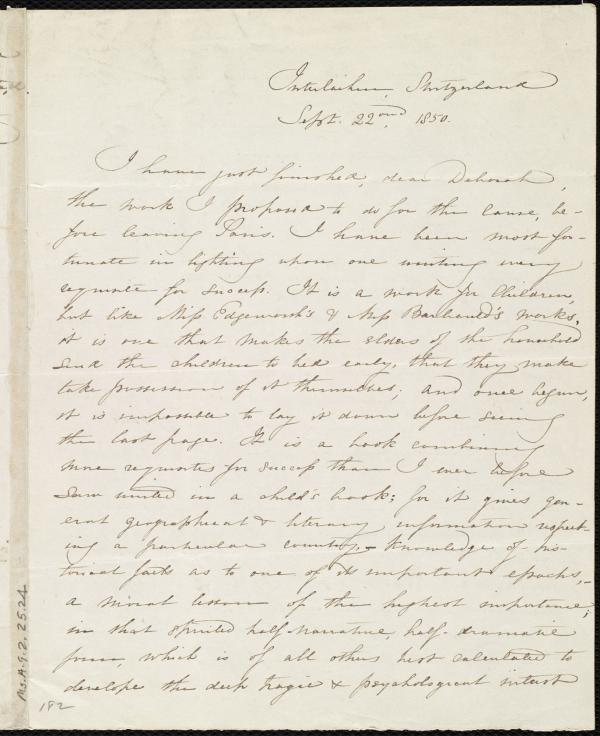 Interlachen, Switzerland
Sept. 22ond, 1850.
I have just finished, dear Deborah,
the work I proposed to do for the cause, be-
fore leaving Paris. I have been most for-
tunate in lighting upon one uniting every
requisite for success. It is a work for children,
but like Miss Edgeworth's & Mrs Barbauld's works,
it is one that makes the elders of the household
send the children to bed early, that they make
take possession of it themselves; and once begun,
it is impossible to lay it down before seeing
the last page. It is a book combining
more requisites for success than I ever before
saw united in a child's book; for it gives gen-
eral geographical & literary information respect-
ing a particular country, - knowledge of his-
torical facts as to one of its important epochs, -
a moral lesson of the highest importance;
in that spirited half-narrative, half-dramatic
form, which is of all others best calculated to
develope the deep tragic & psychological interest
Ms.A.9.2.25.24
182